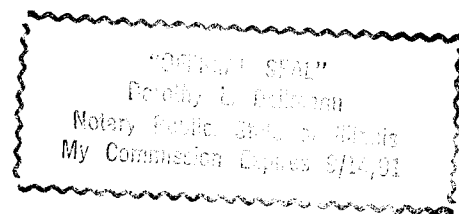 "OFFICIAL SEAL"
Dorothy L.
Notary Public, State of Illinois
My Commission Expires 9/14/91